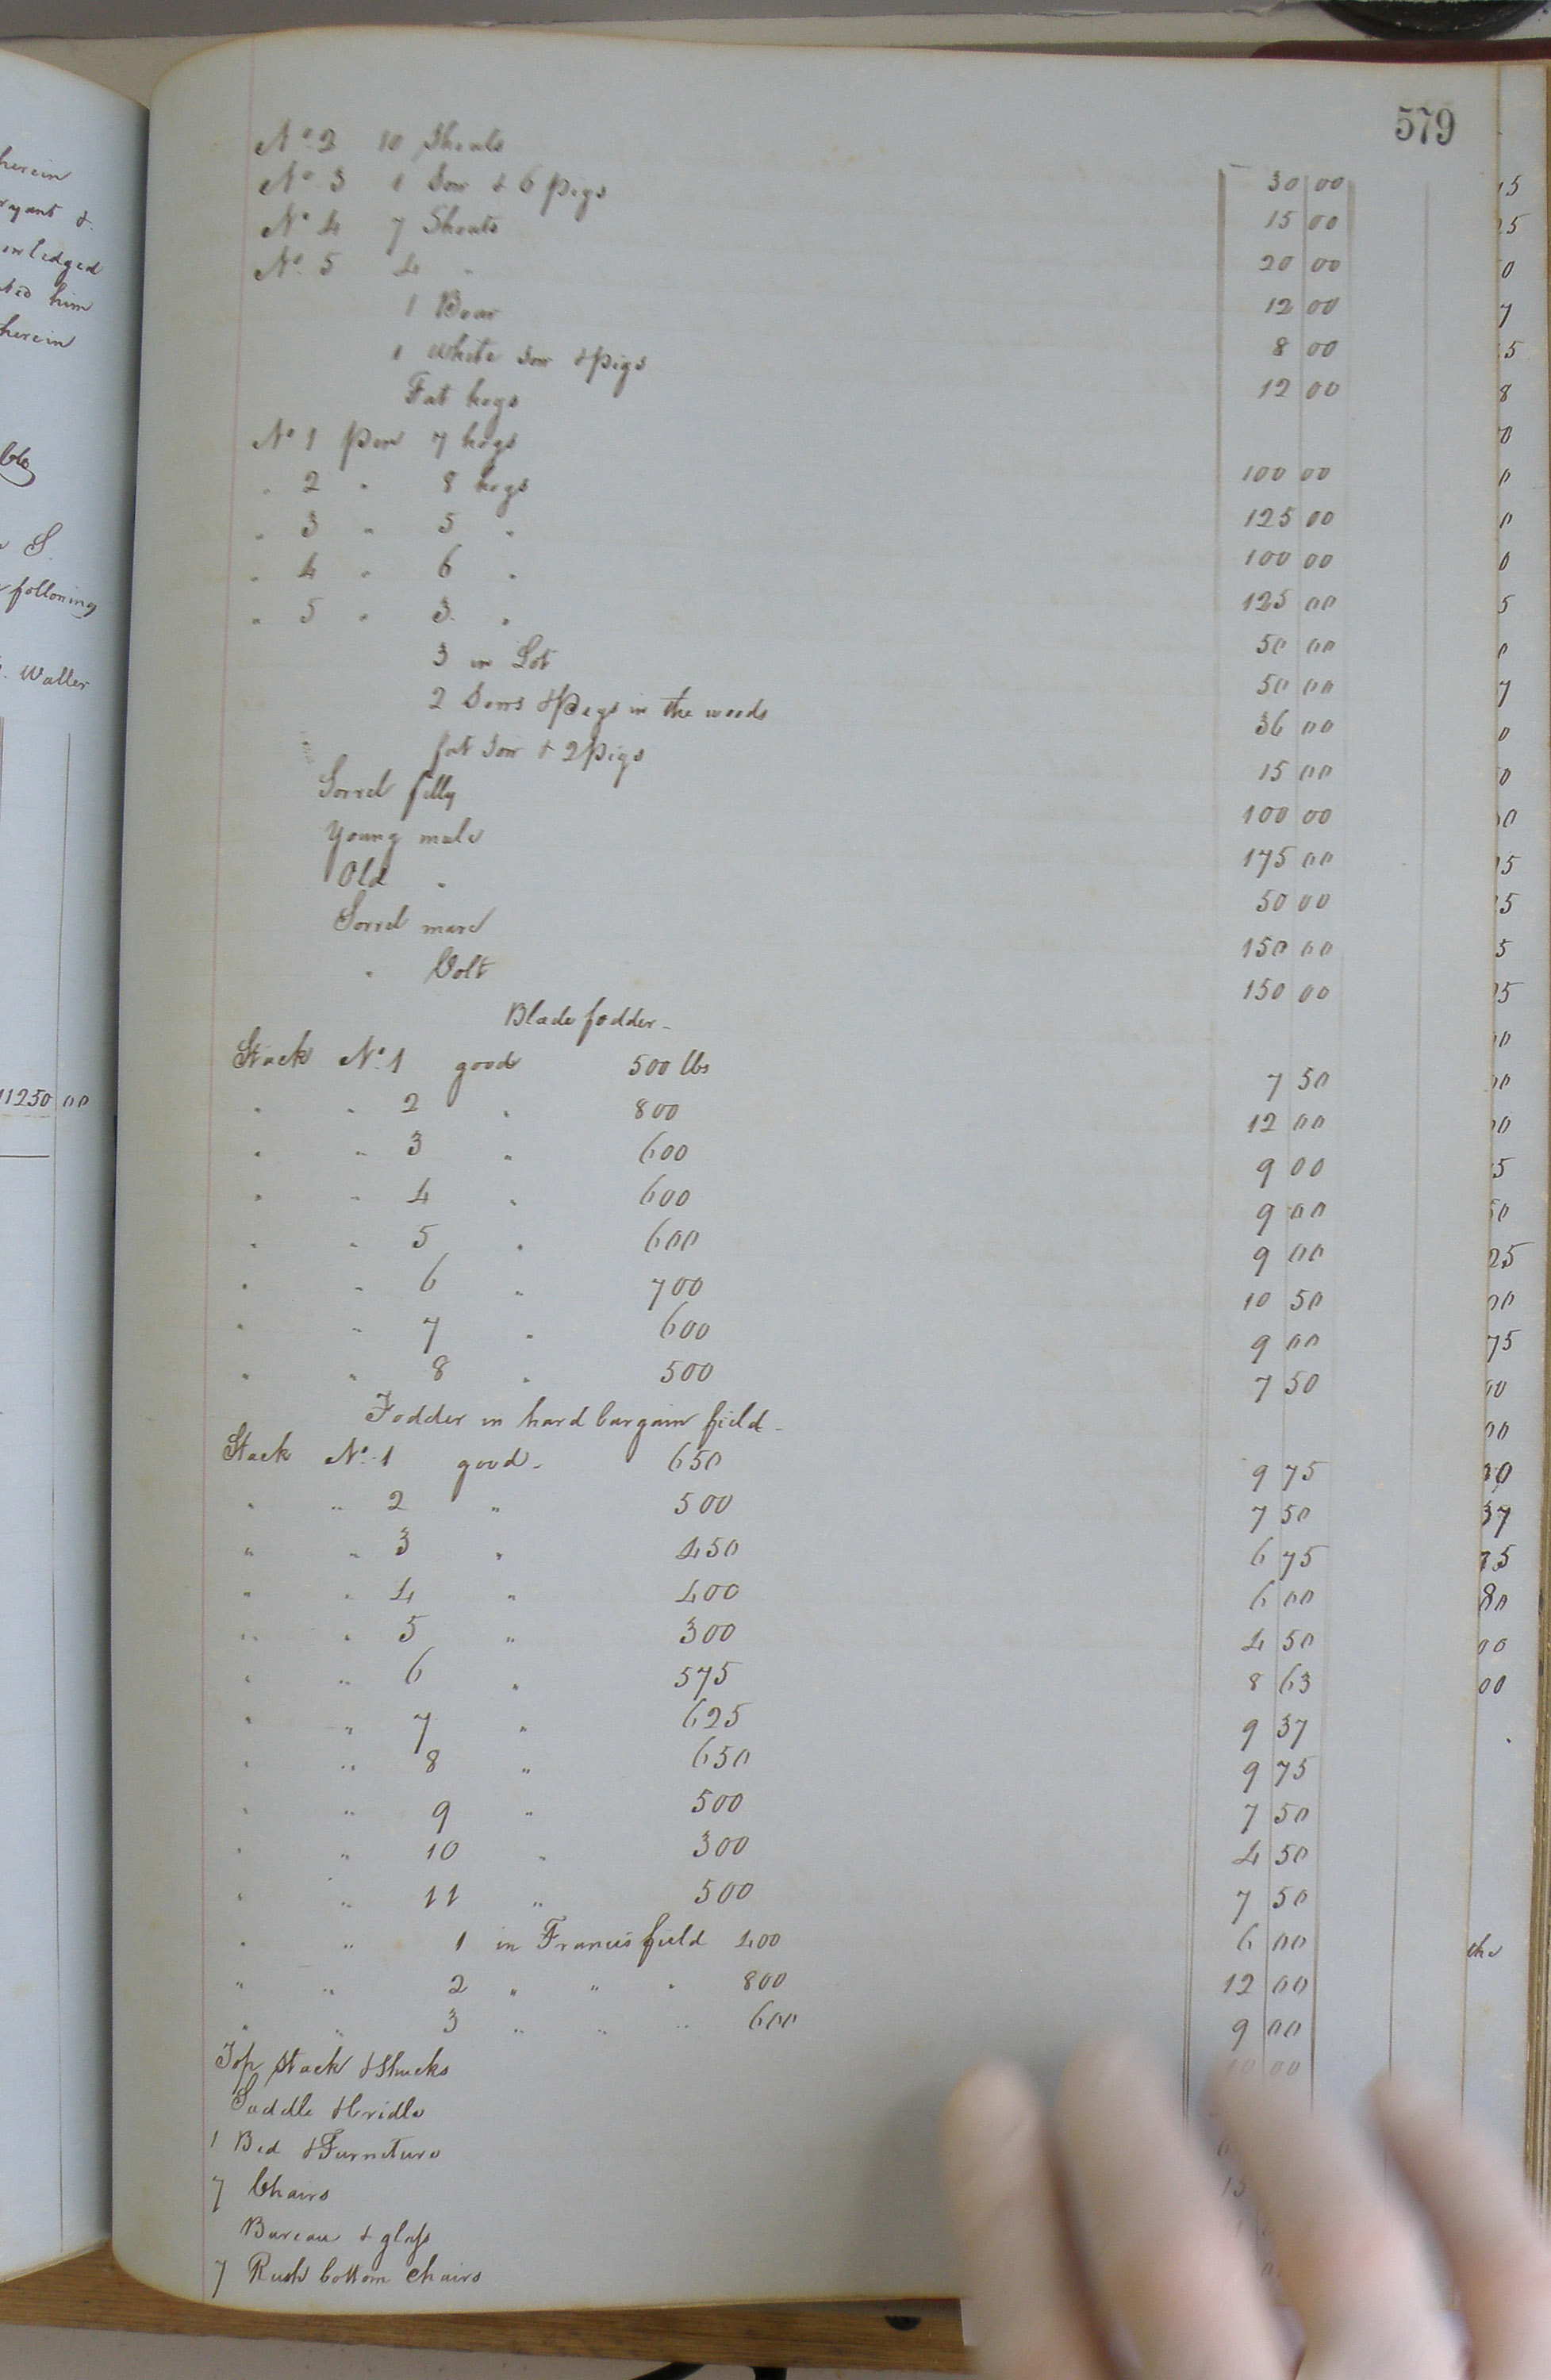 herein
yant &
owledged
ted him
herein
S.
following
Waller
11250 00
579
No. 2 10 Shoats 30 00
No. 3 1 Sow & 6 pigs 15 00
No. 4 7 Shoats 20 00
No. 5 4 " 12 00
1 Boar 8 00
1 White Sow & pigs 12 00
Fat hogs
No 1 pen 7 hogs 100 00
" 2 " 8 hogs 125 00
" 3 " 5 " 100 00
" 4 " 6 " 125 00
" 5 " 3 " 50 00
3 in Lot 50 00
2 Sows & Pigs in the woods 36 00
fat Sow & 2 pigs 15 00
Sorrel filly 100 00
Young mule 175 00
Old " 50 00
Sorrel mare 150 00
" Colt 150 00
Blade fodder -
Stack No. 1 good 500 lbs 7 50
" " 2 " 800 12 00
" " 3 " 600 9 00
" " 4 " 600 9 00
" " 5 " 600 9 00
" " 6 " 700 10 50
" " 7 " 600 9 00
" " 8 " 500 7 50
Fodder in hard bargain field -
Stack No. 1 good - 650 9 75
" " 2 " 500 7 50
" " 3 " 450 6 75
" " 4 " 400 6 00
" " 5 " 300 4 50
" " 6 " 575 8 63
" " 7 " 625 9 37
" " 8 " 650 9 75
" " 9 " 500 7 50
" " 10 " 300 4 50
" " 11 " 500 7 50
" " 1 in Francis field 400 6 00
" " 2 " " " 800 12 00
" " 3 " " " 600 9 00
Top Stack & Shucks 10 00
Saddle & bridle
1 Bed & Furniture
7 Chairs
Bureau & glass
7 Rush bottom chairs